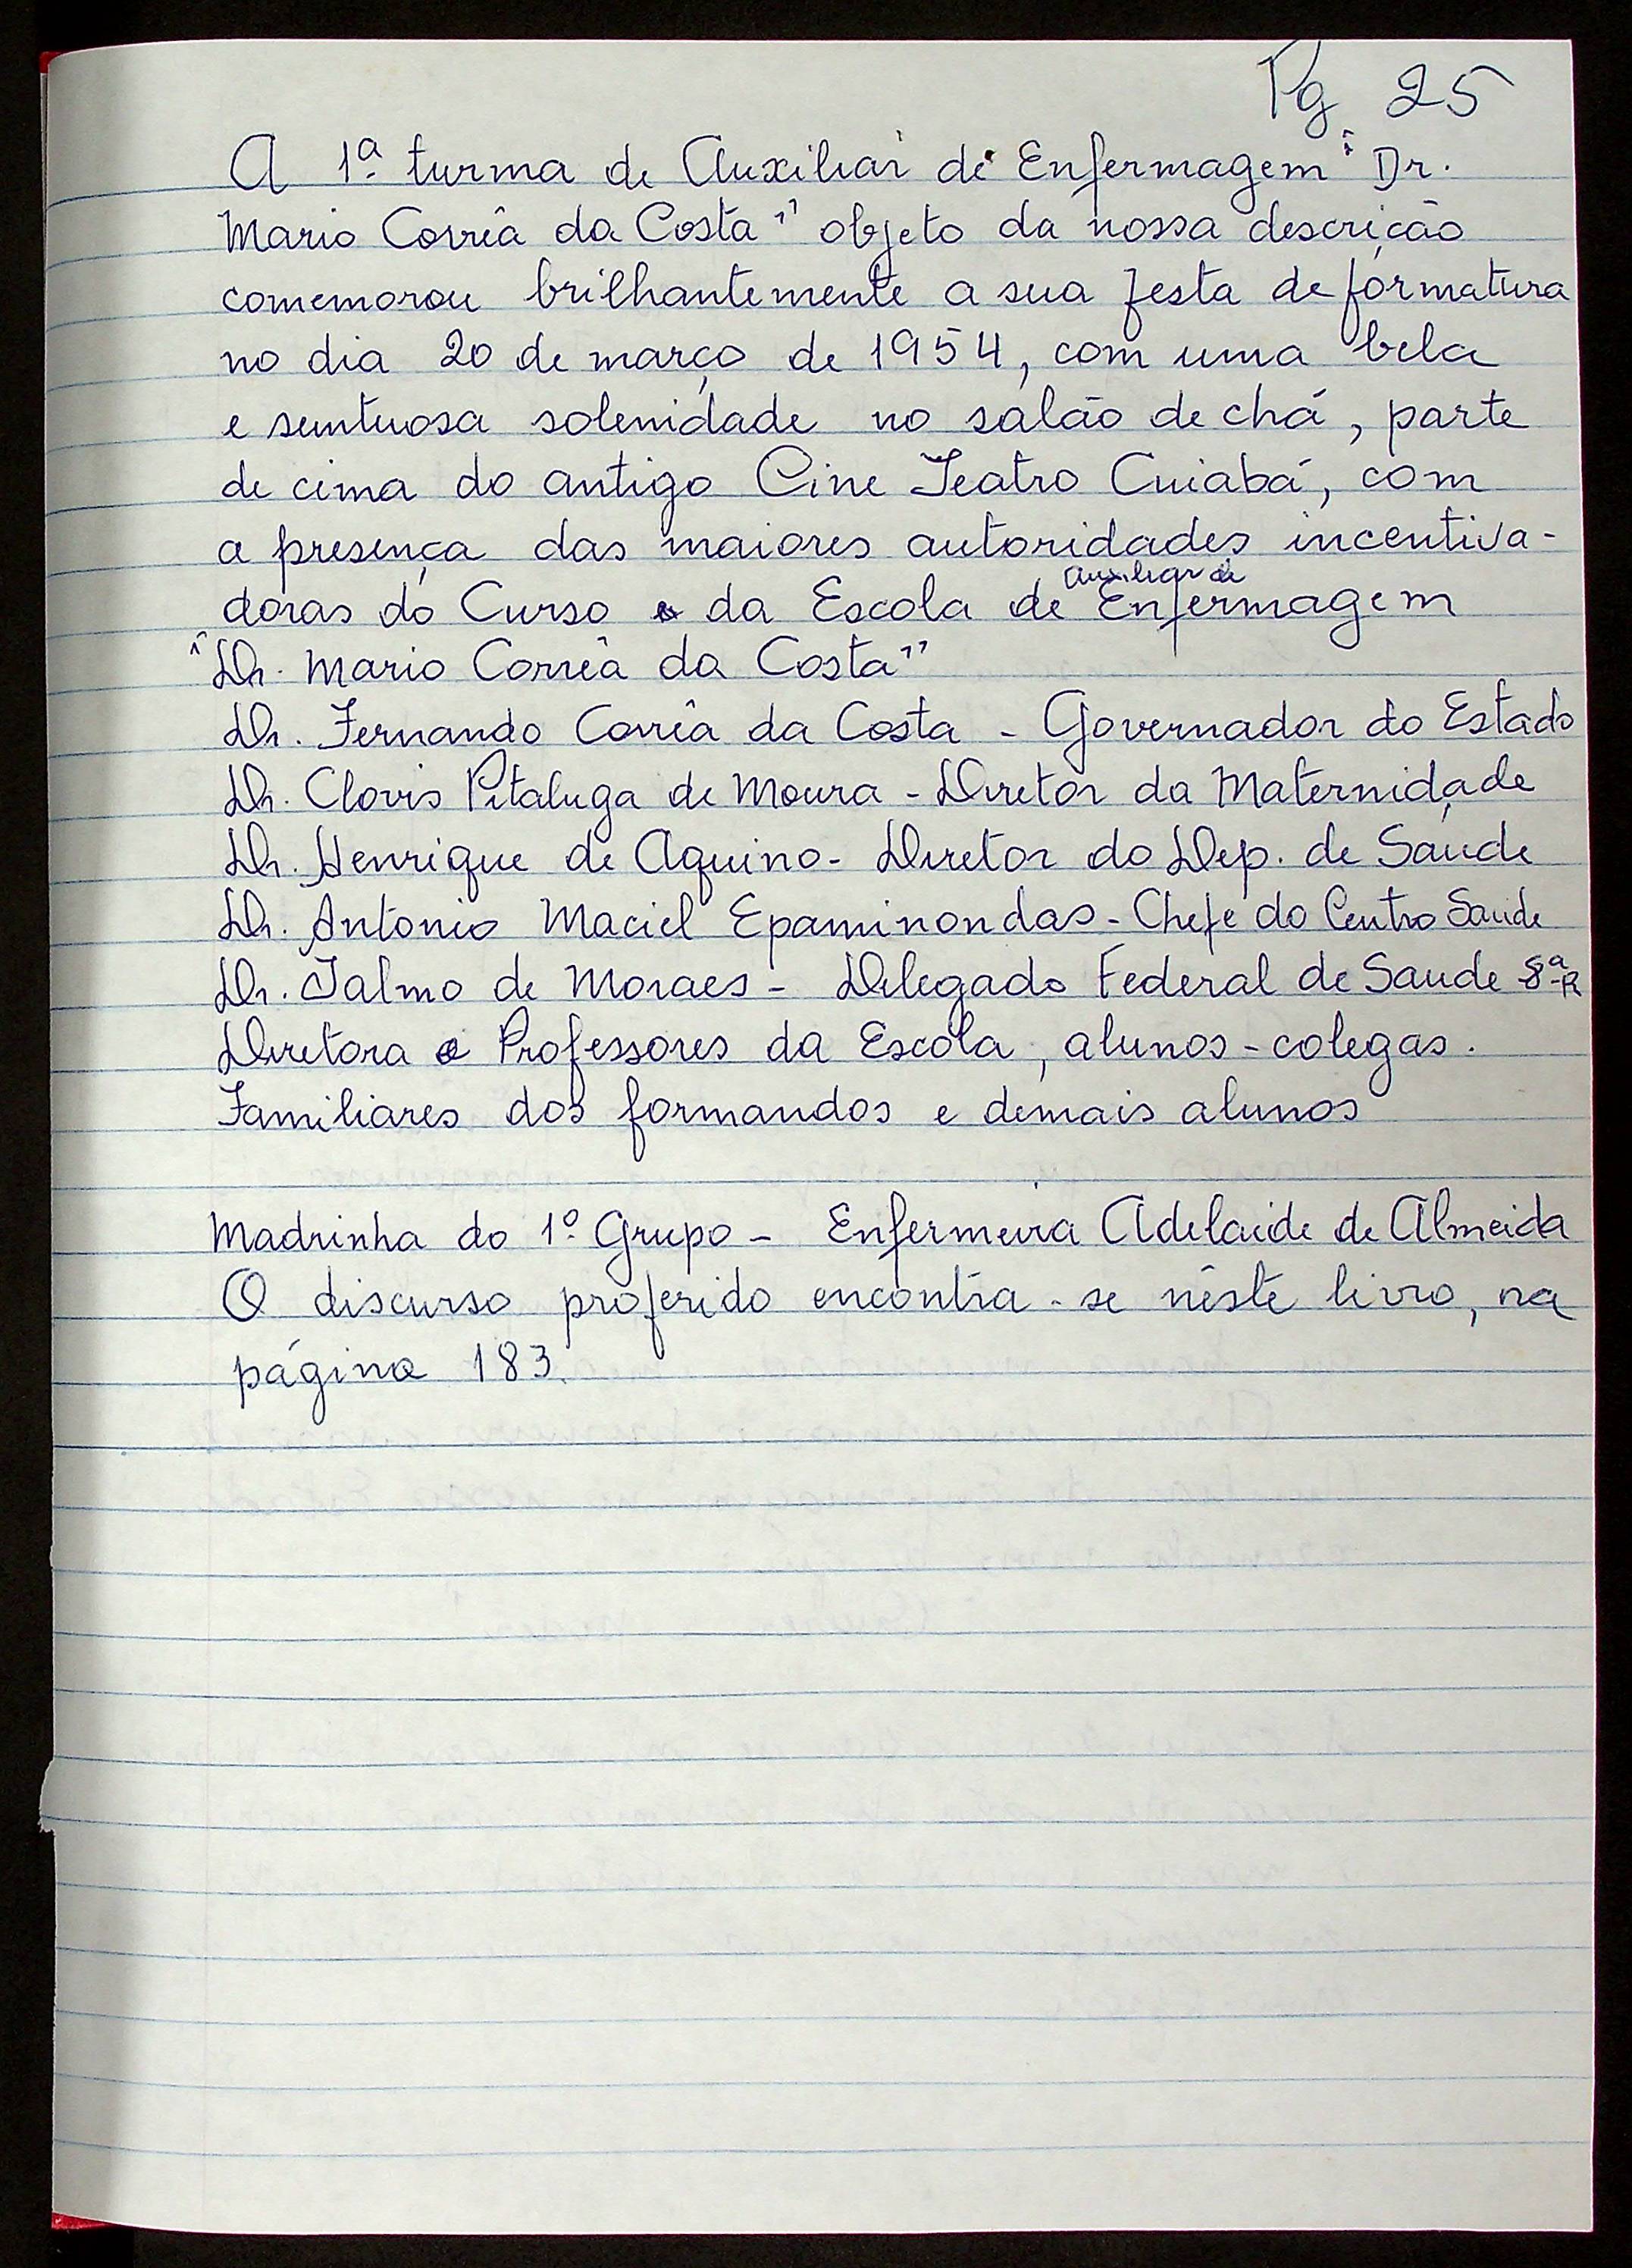 Pg 25
A 1ª turma de Auxiliar de Enfermagem "Dr.
Mario Corrêa da Costa" objeto da nossa descrição
comemorou brilhantemente a sua festa de formatura
no dia 20 de março de 1954, com uma bela
e suntuosa solenidade no salão de chá, parte
de cima do antigo Cine Teatro Cuiabá, com
a presença das maiores autoridades incentiva-
auxiliar de
doras do Curso e da Escola de Enfermagem
"Dr. Mario Corrêa da Costa"
Dr. Fernando Corrêa da Costa - Governador do Estado
Dr. Clovis Pitaluga de Moura - Diretor da Maternidade
Dr. Henrique de Aquino - Diretor do Dep. de Saúde
Dr. Antonio Maciel Epaminondas - Chefe do Centro Saúde
Dr. Jalmo de Moraes - Delegado Federal de Saude 8ª R
Diretora e Professores da Escola, alunos - colegas.
Familiares dos formandos e demais alunos
Madrinha do 1º Grupo - Enfermeira Adelaide de Almeida
O discurso proferido encontra-se nêste livro, na
página 183.